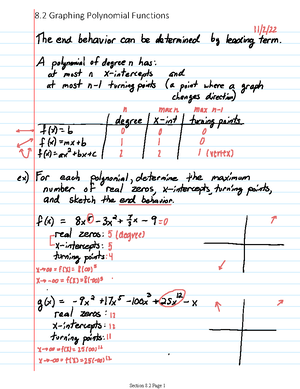 8.2 Graphing Polynomial Functions
11/2/22
The end behavior can be determined by leading term.
A polynomial of degree n has:
at most n x-intercepts and
at most n-1 turning points (a point where a graph
changes direction)
n max n max n-1
degree x-int turning points
f(x) = b 0 0 0
f(x) = mx+b 1 1 0
f(x) = ax²+bx+c 2 2 1 (vertex)
ex) For each polynomial, determine the maximum
number of real zeros, x-intercepts, turning points,
and sketch the end behavior.
f(x) = 8x⁵ - 3x² + x - 9 = 0
real zeros: 5 (degree)
x-intercepts: 5
turning points: 4
x→∞ = f(x) = 8(∞)⁵
x→-∞ = f(x) = 8(-∞)⁵
g(x) = -9x² + 17x⁵ - 100x³ + 25x¹² - x
real zeros: 12
x-intercepts: 12
turning points: 11
x→∞ = f(x) = 25(∞)¹²
x→-∞ = f(x) = 25(-∞)¹²
Section 8.2 Page 1